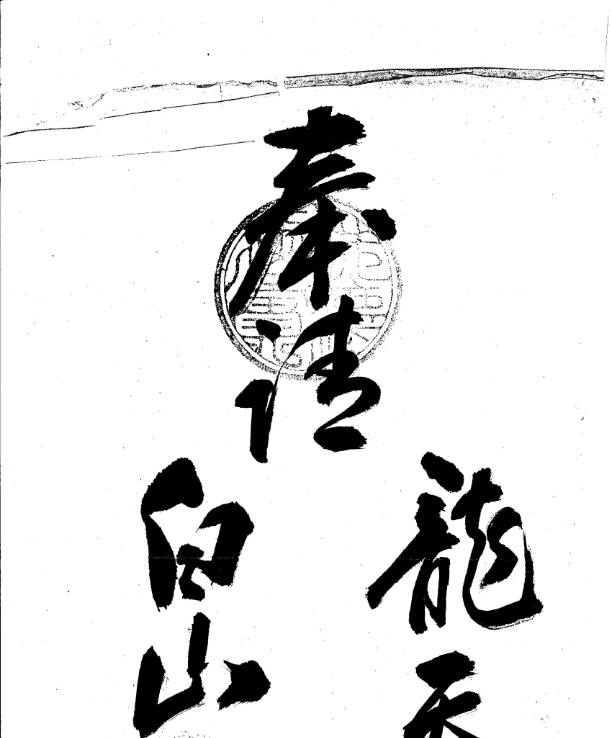 奉請
龍天
白山